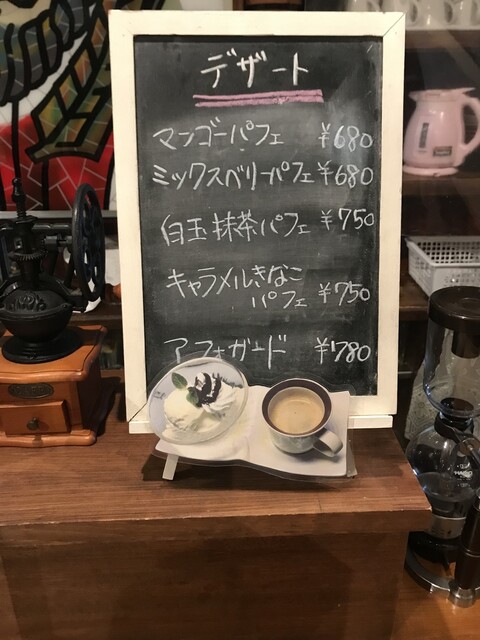 デザート
マンゴーパフェ ¥680
ミックスベリーパフェ ¥680
白玉抹茶パフェ ¥750
キャラメルきなこ
パフェ ¥750
アフォガード ¥780